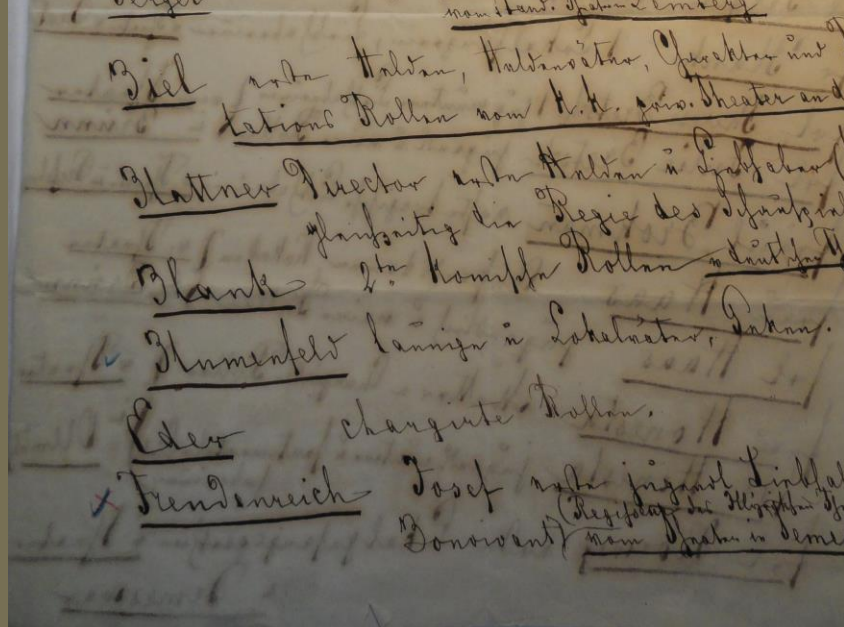 Berger vom ständ. Theater Lemberg
Biel erste Helden, Heldenväter, Charakter und
tations Rollen vom K.K. priv. Theater an d
Blattner Director erste Helden u Liebhaber (
gleichzeitig die Regie des Schauspiel
Blank 2te Komische Rollen v deutschen
Blumenfeld launige u Lokalväter,
Eder chargirte Rollen.
Freudenreich Josef erste jugendl Liebhab
(Regisseur des
Bonvivant) vom Theater in Teme